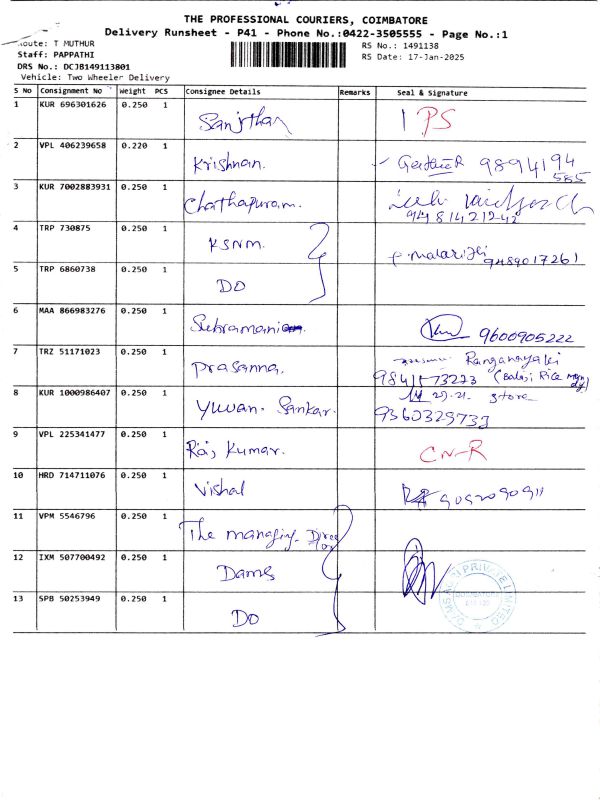 THE PROFESSIONAL COURIERS, COIMBATORE
Delivery Runsheet - P41 - Phone No.:0422-3505555 - Page No.:1
Route: T MUTHUR
RS No.: 1491138
Staff: PAPPATHI
RS Date: 17-Jan-2025
DRS No.: DCJB149113801
Vehicle: Two Wheeler Delivery
S No Consignment No Weight PCS Consignee Details Remarks Seal & Signature
1 KUR 696301626 0.250 1 Sanjthar PS
2 VPL 406239658 0.220 1 Krishnan. 9894194
585
3 KUR 7002883931 0.250 1 Chathapuram.
4 TRP 730875 0.250 1 KSNM. Malarizhi 9489017261
5 TRP 6860738 0.250 1 DO
6 MAA 866983276 0.250 1 Subramani 9600905222
7 TRZ 51171023 0.250 1 Prasanna. Ranganayaki
(Balaji Rice
8 KUR 1000986407 0.250 1 Yuvan Sankar. store
9360329733
9 VPL 225341477 0.250 1 Raj Kumar. CN-R
10 HRD 714711076 0.250 1 Vishal
11 VPM 5546796 0.250 1 The managing Director
12 IXM 507700492 0.250 1 Dams
13 SPB 50253949 0.250 1 DO
PRIVATE LIMITED